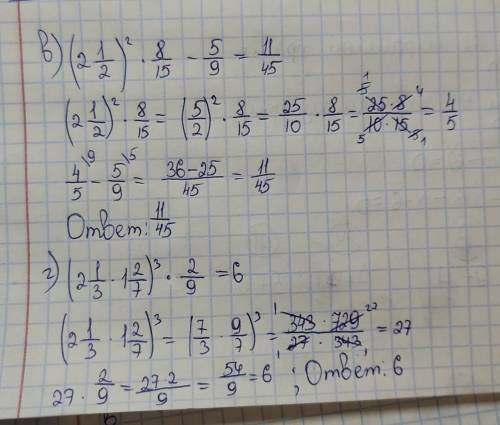 в) (2 1/2)² · 8/15 − 5/9 = 11/45
(2 1/2)² · 8/15 = (5/2)² · 8/15 = 25/10 · 8/15 = 25·8/10·15 = 4/5
4/5 − 5/9 = 36−25/45 = 11/45
Ответ: 11/45
г) (2 1/3 · 1 2/7)³ · 2/9 = 6
(2 1/3 · 1 2/7)³ = (7/3 · 9/7)³ = 343 · 729/27 · 343 = 27
27 · 2/9 = 27·2/9 = 54/9 = 6 ; Ответ: 6